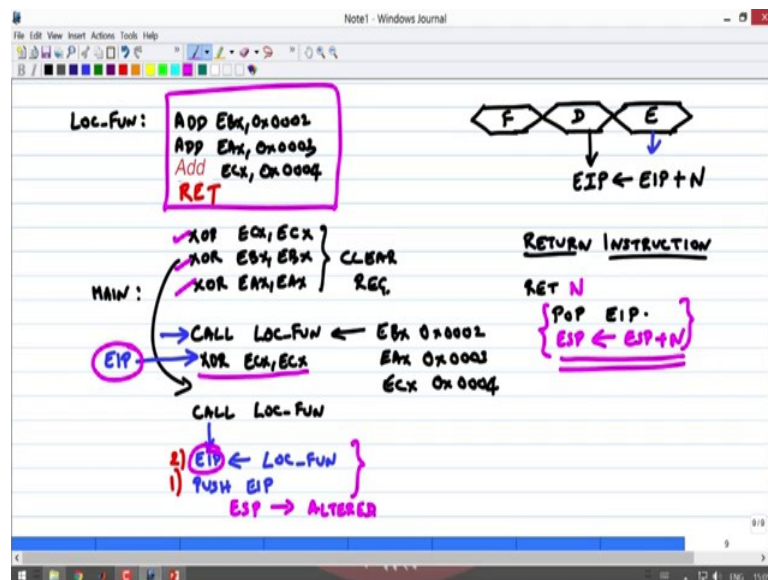 Note1 - Windows Journal
File Edit View Insert Actions Tools Help
B I
LOC_FUN:
ADD EBX, 0x0002
ADD EAX, 0x0003
Add ECX, 0x0004
RET
F D E
EIP ← EIP + N
XOR ECX, ECX
XOR EBX, EBX
XOR EAX, EAX
CLEAR
REG.
MAIN:
CALL LOC_FUN ← EBX 0x0002
EIP → XOR ECX, ECX EAX 0x0003
ECX 0x0004
CALL LOC_FUN
2) EIP ← LOC_FUN
1) PUSH EIP
ESP → ALTERED
RETURN INSTRUCTION
RET N
POP EIP.
ESP ← ESP + N
9/9
9
ENG